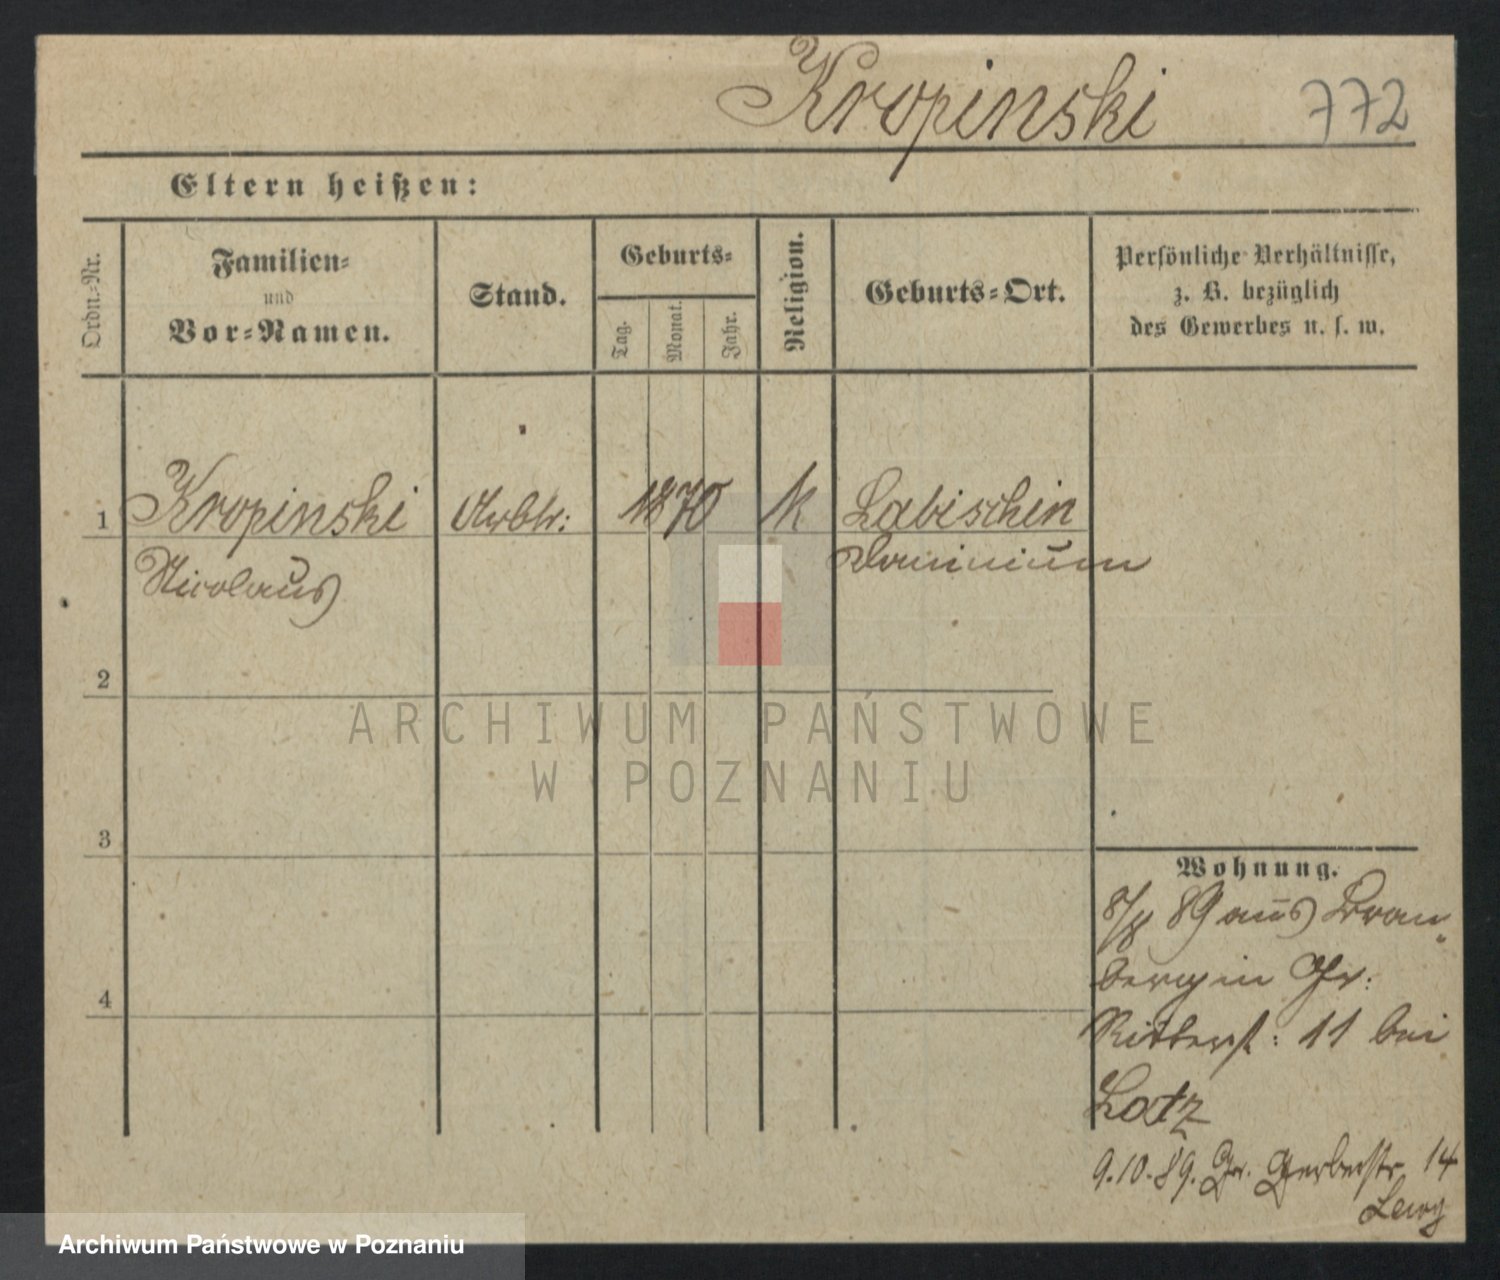 Kropinski 772
Eltern heißen:
Ordn.-Nr.
Familien-
und
Vor-Namen.
Stand.
Geburts-
Tag.
Monat.
Jahr.
Religion.
Geburts-Ort.
Persönliche Verhältnisse,
z. B. bezüglich
des Gewerbes u. s. w.
1 Kropinski Arbtr: 1870 k Labischin
Nicolaus Dominium
2
3
4
Wohnung.
89 aus
berg in Gr:
Ritterst: 11 bei
Latz
9.10.89. Gr. Gerberstr. 14
Lewy
ARCHIWUM PAŃSTWOWE
W POZNANIU
Archiwum Państwowe w Poznaniu